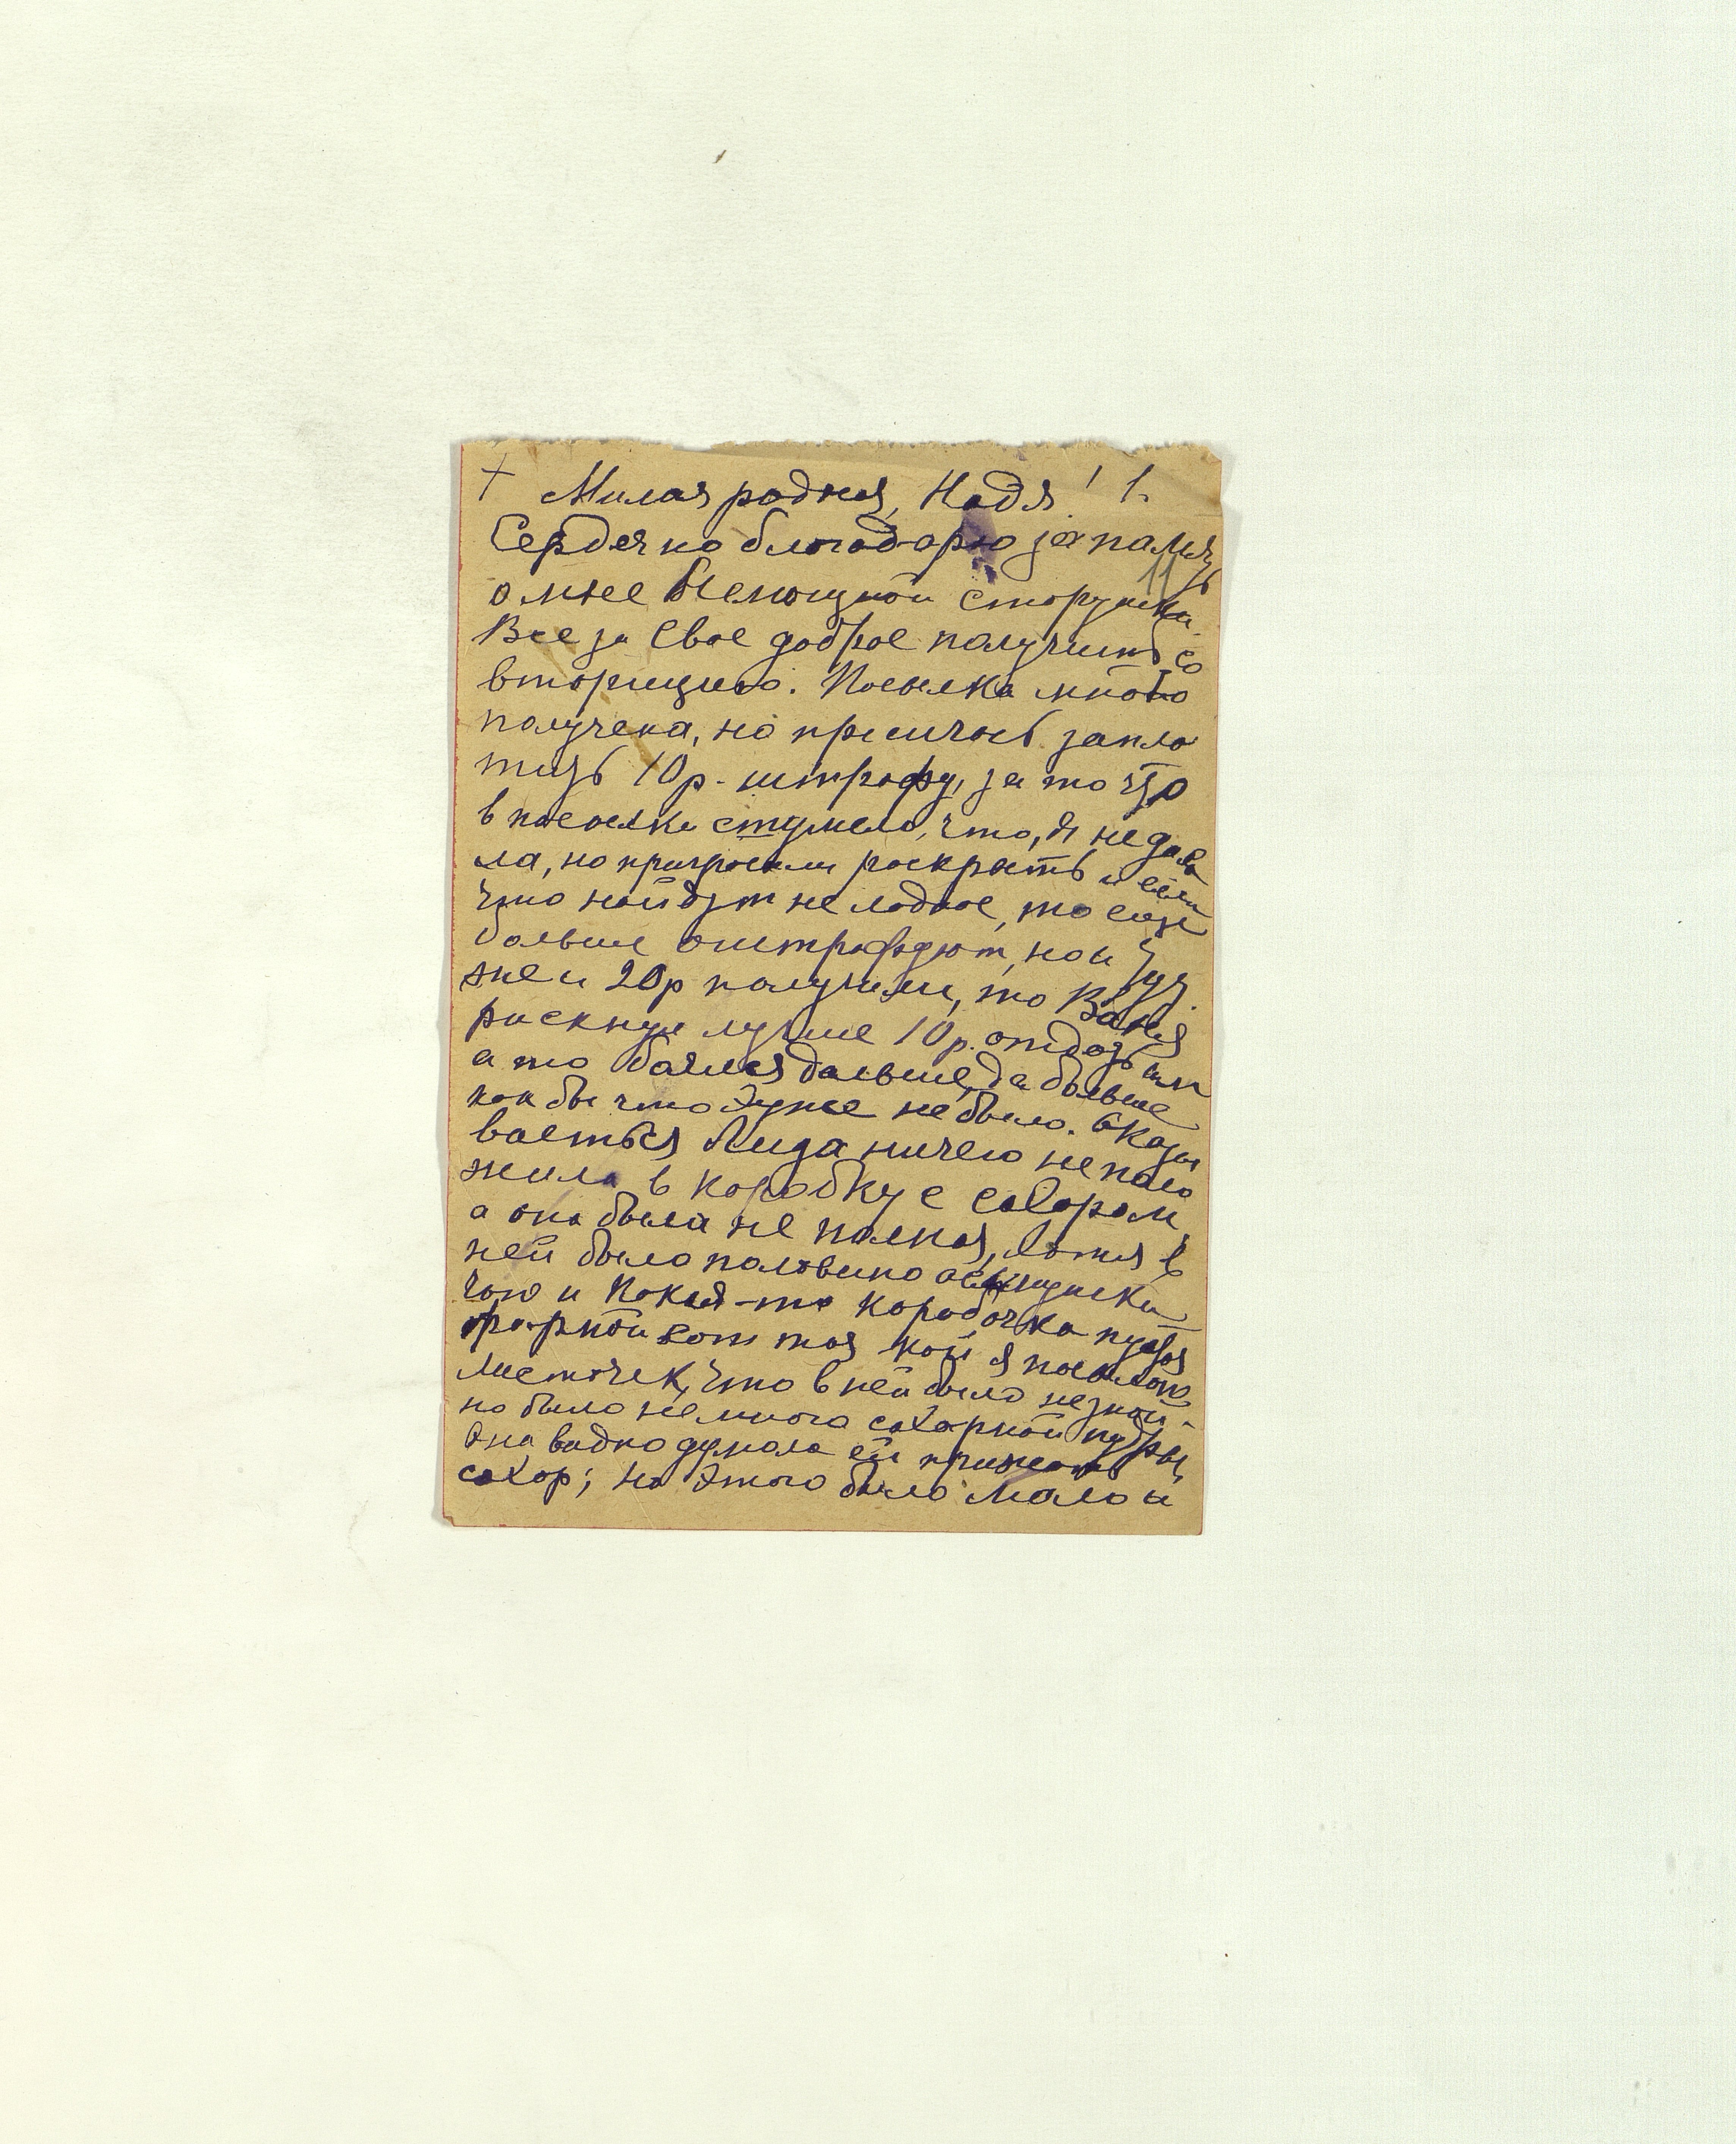 + Милая родная, Надя! 1.
Сердечно благодарю за память
о мне немощной старушки.
Все за свое доброе получишь со
вторицею. Посылка мною
получена, но пришлось запла
тить 10 р. штрафу, за то что
в посылке стучмело, что, я не дава
ла, но пригрозили раскрыть и если
что найдут не ладное, то еще
больше оштрафуют, но и
же и 20р получили, то Ваня
рискнул лучше 10 р. отдать им
а то боялся дальше, да больше
как бы что хуже не было. Оказы
ваеться Лида ничего не поло
жила в коробку с сахаром
а она была не полная, хотя в
ней было половина осьмушки
чаю и какая-то коробочка пустая
форной вот тая кой я посылаю
листочек, что в ней было не знаю.
но было немного сахарной пудры,
Она видно думала ей прижать
сахор; но этого было мало и